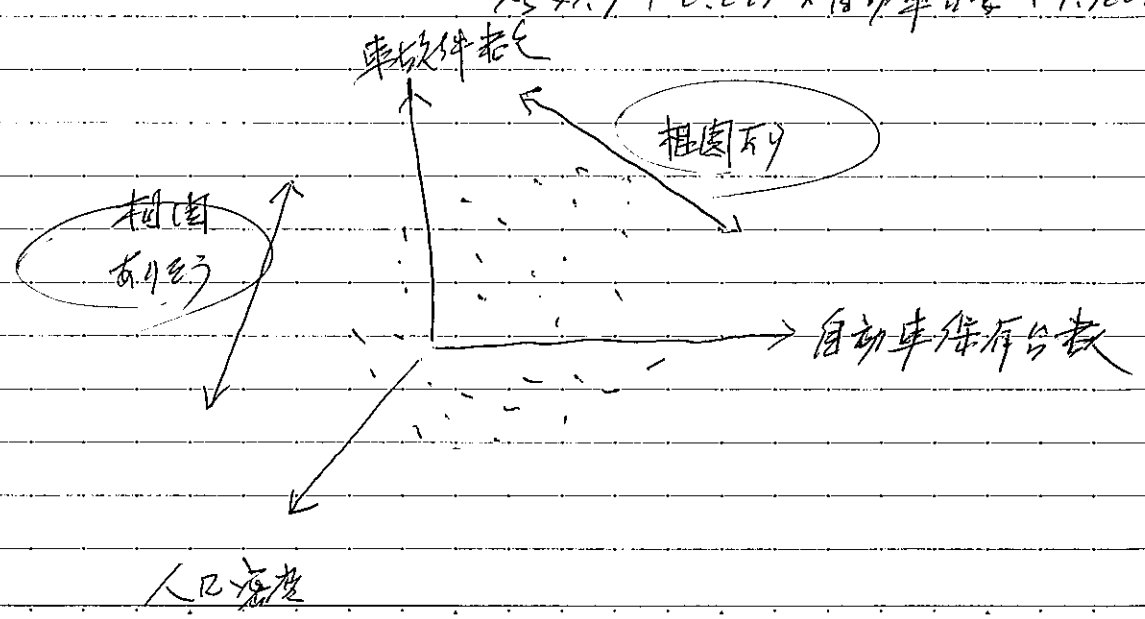 × 自動車台数 +
事故件数
相関有り
相関
ありそう
自動車保有台数
人口密度